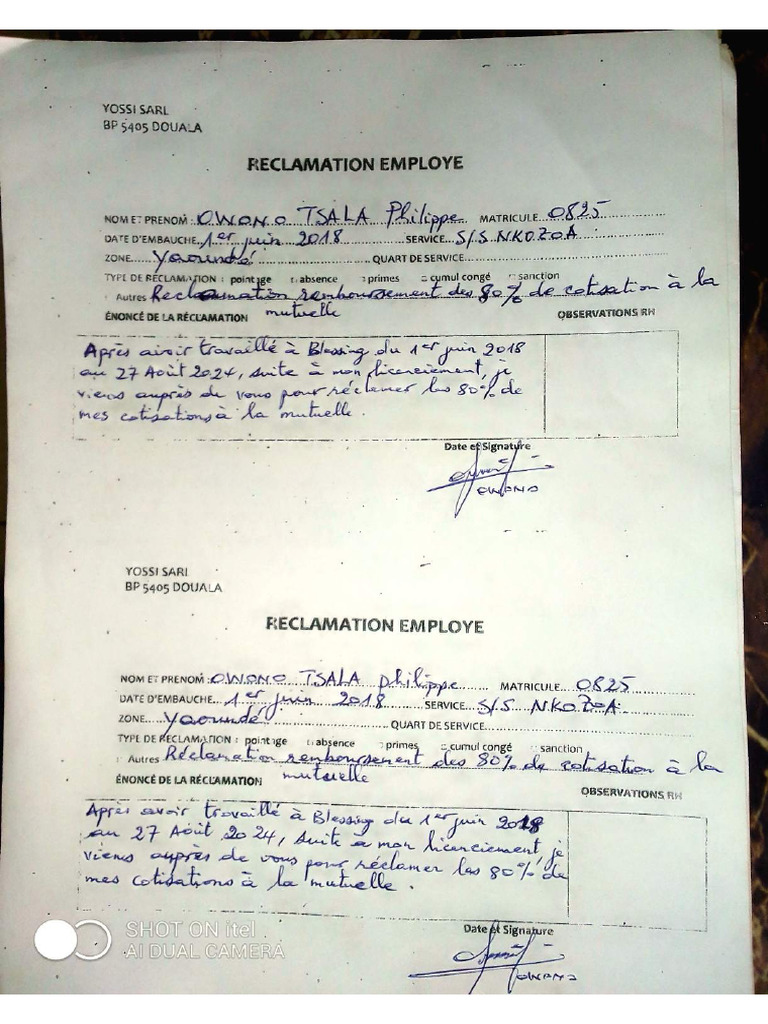 YOSSI SARL
BP 5405 DOUALA
RECLAMATION EMPLOYE
NOM ET PRENOM : OWONO TSALA Philippe MATRICULE 0825
DATE D'EMBAUCHE 1er juin 2018 SERVICE S/S NKOZOA
ZONE Yaoundé QUART DE SERVICE
TYPE DE RECLAMATION : pointage absence primes cumul congé sanction
Autres Reclamation remboursement des 80% de cotisation à la
mutuelle
ÉNONCÉ DE LA RÉCLAMATION OBSERVATIONS RH
Après avoir travaillé à Blessing du 1er juin 2018
au 27 Août 2024, suite à mon licenciement, je
viens auprès de vous pour réclamer les 80% de
mes cotisations à la mutuelle.
Date et Signature
OWONO
YOSSI SARL
BP 5405 DOUALA
RECLAMATION EMPLOYE
NOM ET PRENOM : OWONO TSALA philippe MATRICULE 0825
DATE D'EMBAUCHE 1er juin 2018 SERVICE S/S NKOZOA
ZONE Yaoundé QUART DE SERVICE
TYPE DE RECLAMATION : pointage absence primes cumul congé sanction
Autres Réclamation remboursement des 80% de cotisation à la
mutuelle
ÉNONCÉ DE LA RÉCLAMATION OBSERVATIONS RH
Après avoir travaillé à Blessing du 1er juin 2018
au 27 Août 2024, suite à mon licenciement, je
viens auprès de vous pour réclamer les 80% de
mes cotisations à la mutuelle.
Date et Signature
OWONO
SHOT ON itel
AI DUAL CAMERA